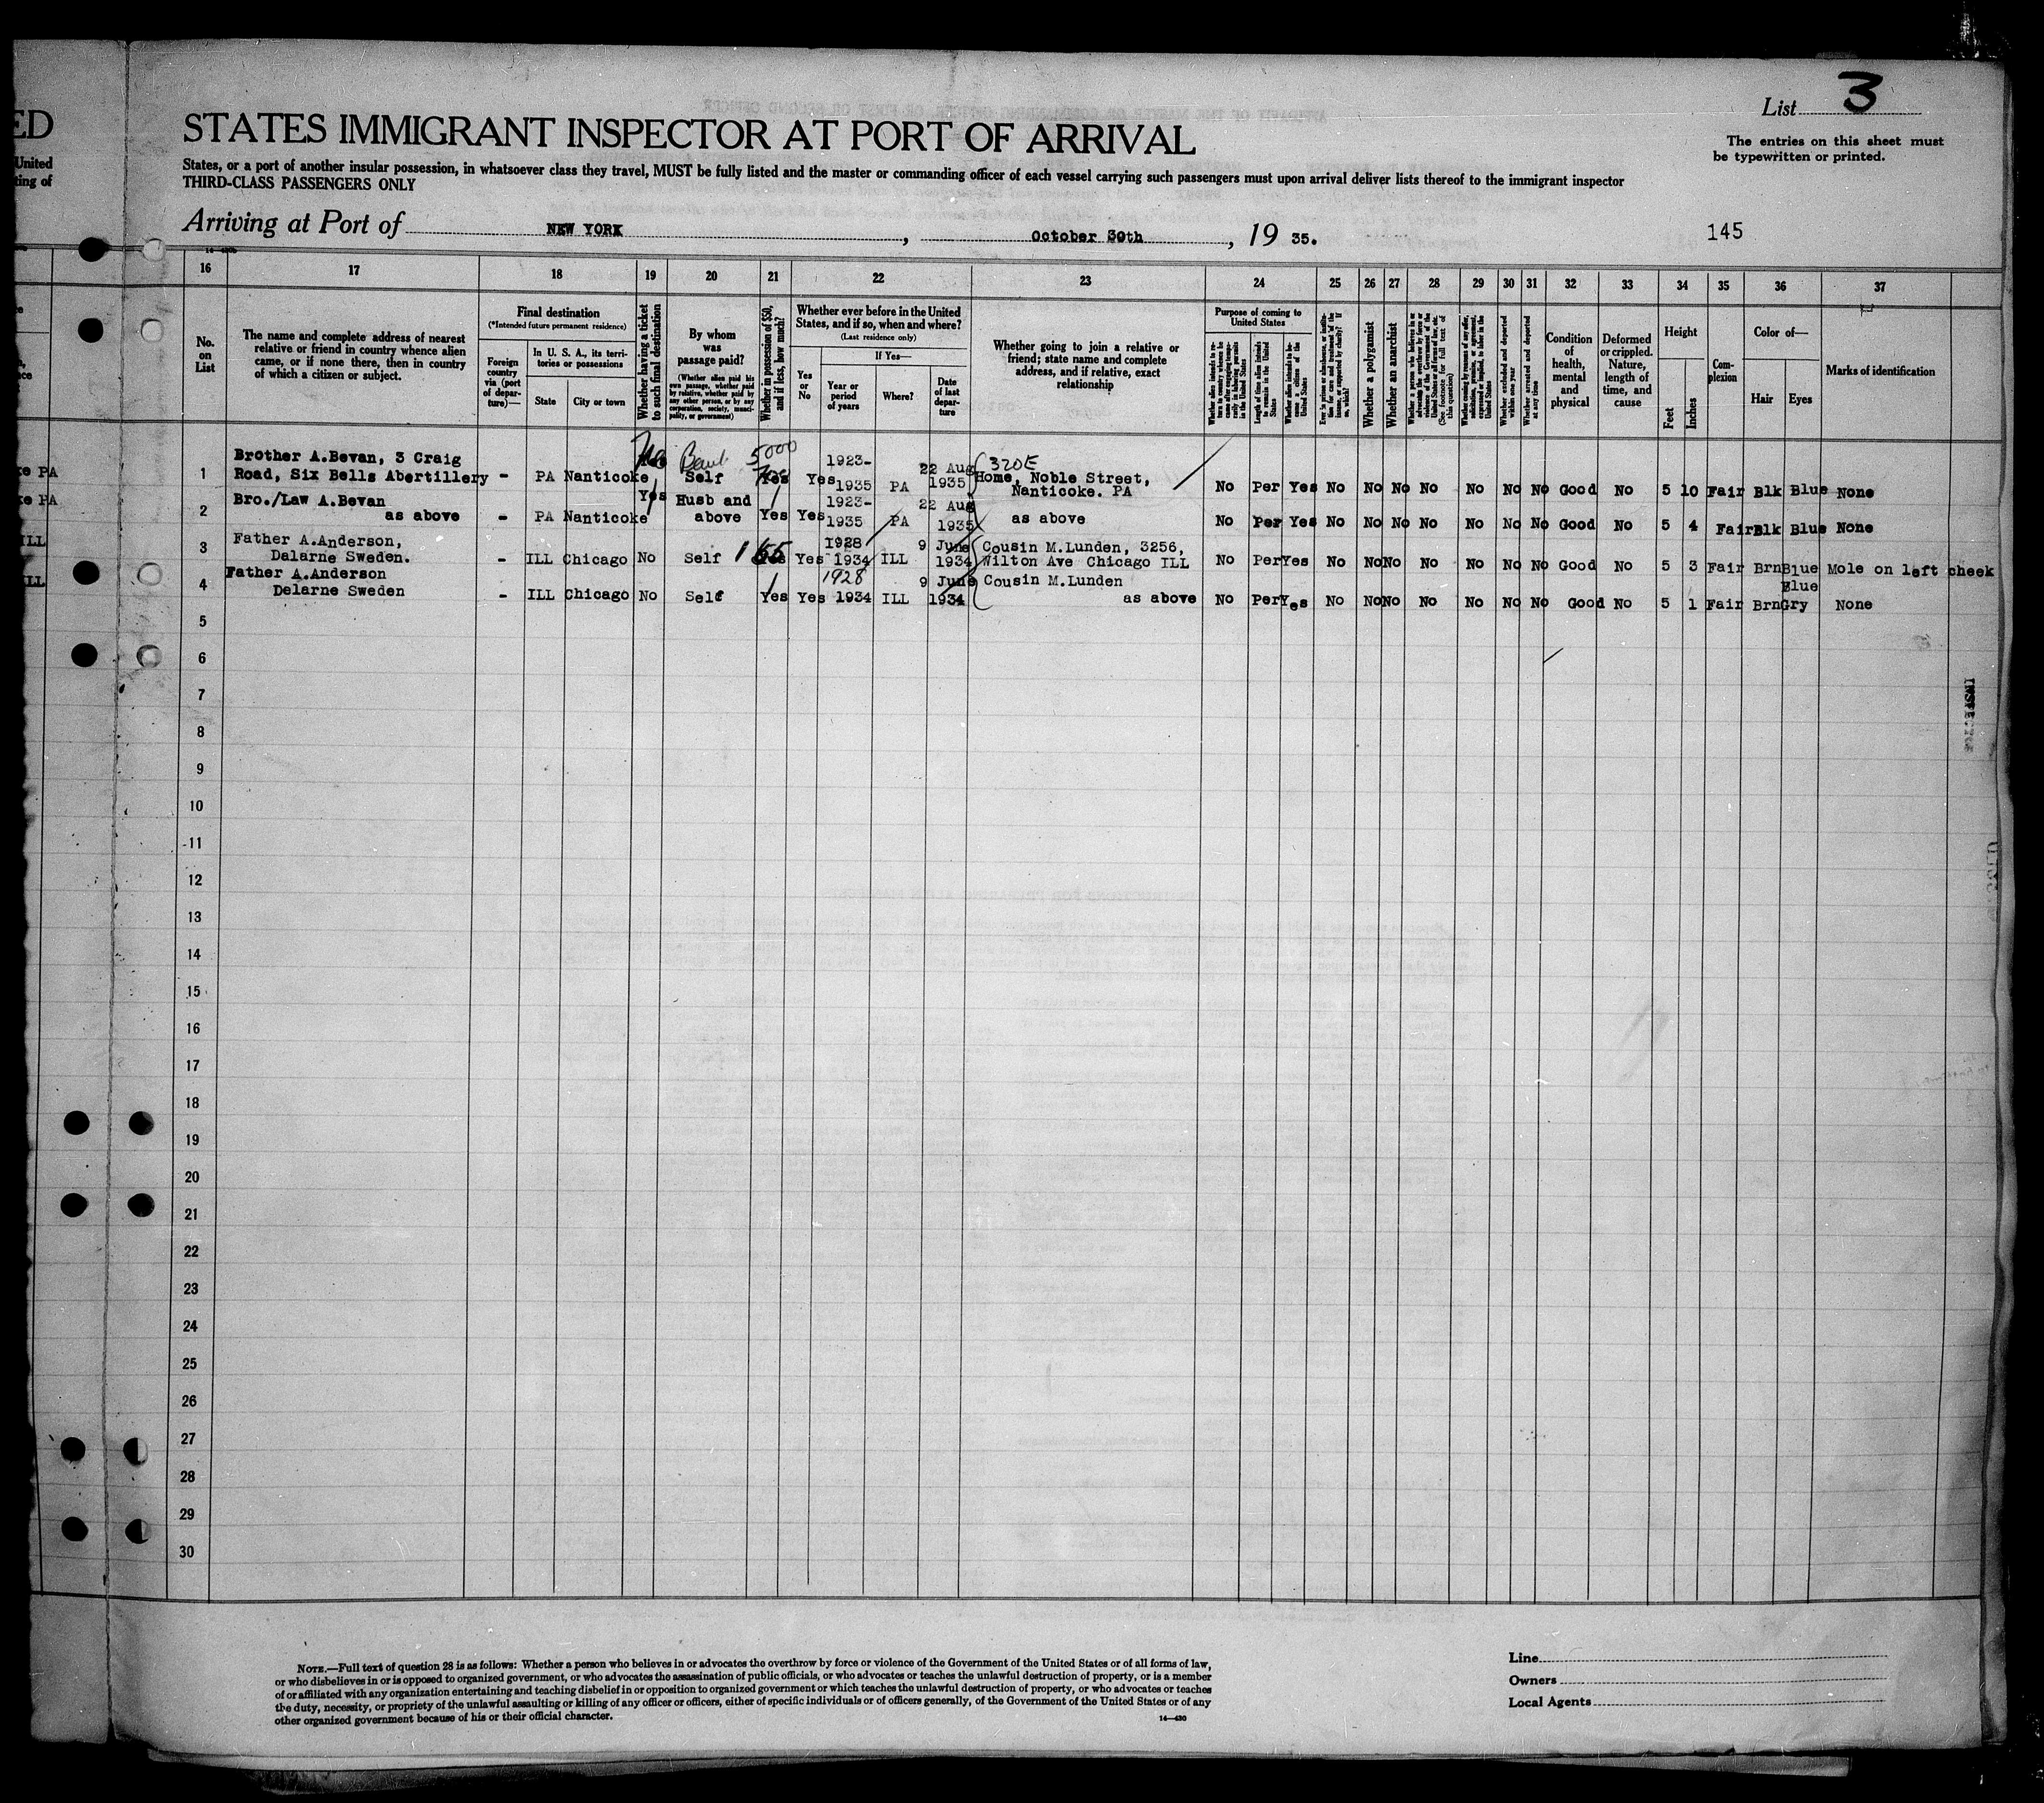 ED
United
ting of
List 3
STATES IMMIGRANT INSPECTOR AT PORT OF ARRIVAL
The entries on this sheet must
be typewritten or printed.
States, or a port of another insular possession, in whatsoever class they travel, MUST be fully listed and the master or commanding officer of each vessel carrying such passengers must upon arrival deliver lists thereof to the immigrant inspector
THIRD-CLASS PASSENGERS ONLY
Arriving at Port of NEW YORK , October 30th , 19 35.
145
16 17 18 19 20 21 22 23 24 25 26 27 28 29 30 31 32 33 34 35 36 37
No.
on
List
The name and complete address of nearest
relative or friend in country whence alien
came, or if none there, then in country
of which a citizen or subject.
Final destination
(*Intended future permanent residence)
Foreign
country
via (port
of depar-
ture)—
In U. S. A., its terri-
tories or possessions
State
City or town
Whether having a ticket
to such final destination
By whom
was
passage paid?
(Whether alien paid his
own passage, whether paid
by relative, whether paid by
any other person, or by any
corporation, society, munici-
pality, or government)
Whether in possession of $50,
and if less, how much?
Whether ever before in the United
States, and if so, when and where?
(Last residence only)
Yes
or
No
If Yes—
Year or
period
of years
Where?
Date
of last
depar-
ture
Whether going to join a relative or
friend; state name and complete
address, and if relative, exact
relationship
Purpose of coming to
United States
Whether alien intends to re-
turn to country whence he
came after engaging tempo-
rarily in laboring pursuits
in the United States
Length of time alien intends
to remain in the United
States
Whether alien intends to be-
come a citizen of the
United States
Whether a polygamist
Whether an anarchist
Whether excluded and deported
within one year
Whether arrested and deported
at any time
Condition
of
health,
mental
and
physical
Deformed
or crippled.
Nature,
length of
time, and
cause
Height
Feet
Inches
Com-
plexion
Color of—
Hair
Eyes
Marks of identification
1 Brother A.Bevan, 3 Craig
Road, Six Bells Abertillery - PA Nanticoke No Self 5000 Yes Yes 1923-
1935 PA 22 Aug
1935 320E
Home, Noble Street,
Nanticoke. PA No Per Yes No No No No No No No Good No 5 10 Fair Blk Blue None
2 Bro./Law A.Bevan
as above - PA Nanticoke Yes Husb and
above Yes Yes 1923-
1935 PA 22 Aug
1935 as above No Per Yes No No No No No No No Good No 5 4 Fair Blk Blue None
3 Father A.Anderson,
Dalarne Sweden. - ILL Chicago No Self 155 Yes 1928
1934 ILL 9 June
1934 Cousin M.Lunden, 3256,
Wilton Ave Chicago ILL No Per Yes No No No No No No No Good No 5 3 Fair Brn Blue Mole on left cheek
4 Father A.Anderson
Delarne Sweden - ILL Chicago No Self Yes Yes 1928
1934 ILL 9 June
1934 Cousin M.Lunden
as above No Per Yes No No No No No No No Good No 5 1 Fair Brn Blue
Gry None
5
6
7
8
9
10
11
12
13
14
15
16
17
18
19
20
21
22
23
24
25
26
27
28
29
30
NOTE.—Full text of question 28 is as follows: Whether a person who believes in or advocates the overthrow by force or violence of the Government of the United States or of all forms of law,
or who disbelieves in or is opposed to organized government, or who advocates the assassination of public officials, or who advocates or teaches the unlawful destruction of property, or is a member
of or affiliated with any organization entertaining and teaching disbelief in or opposition to organized government or which teaches the unlawful destruction of property, or who advocates or teaches
the duty, necessity, or propriety of the unlawful assaulting or killing of any officer or officers, either of specific individuals or of officers generally, of the Government of the United States or of any
other organized government because of his or their official character.
14—430
Line
Owners
Local Agents